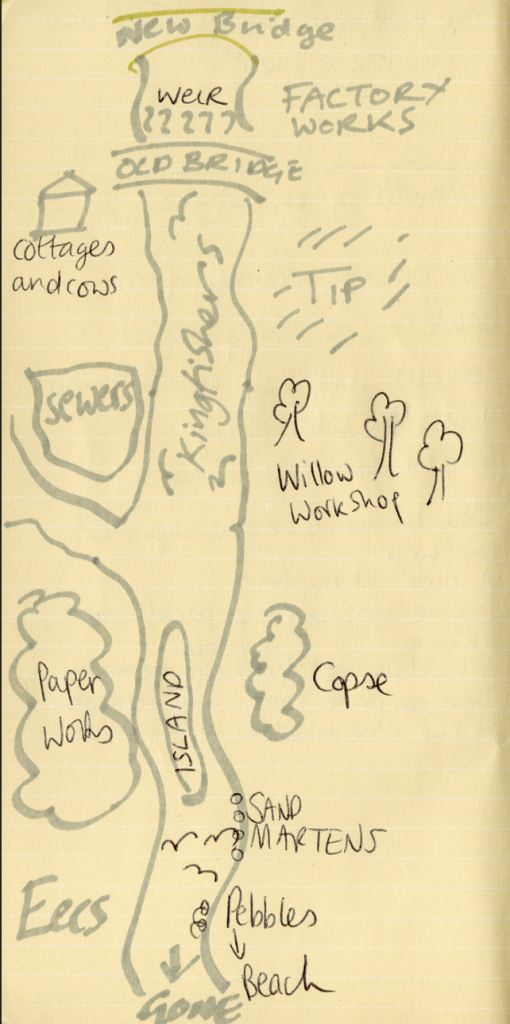 New Bridge
WEIR
FACTORY
WORKS
OLD BRIDGE
cottages
and cows
TIP
Kingfishers
Sewers
Willow
Workshop
Paper
Works
ISLAND
Copse
SAND
MARTENS
Eels
Pebbles
Beach
GONE